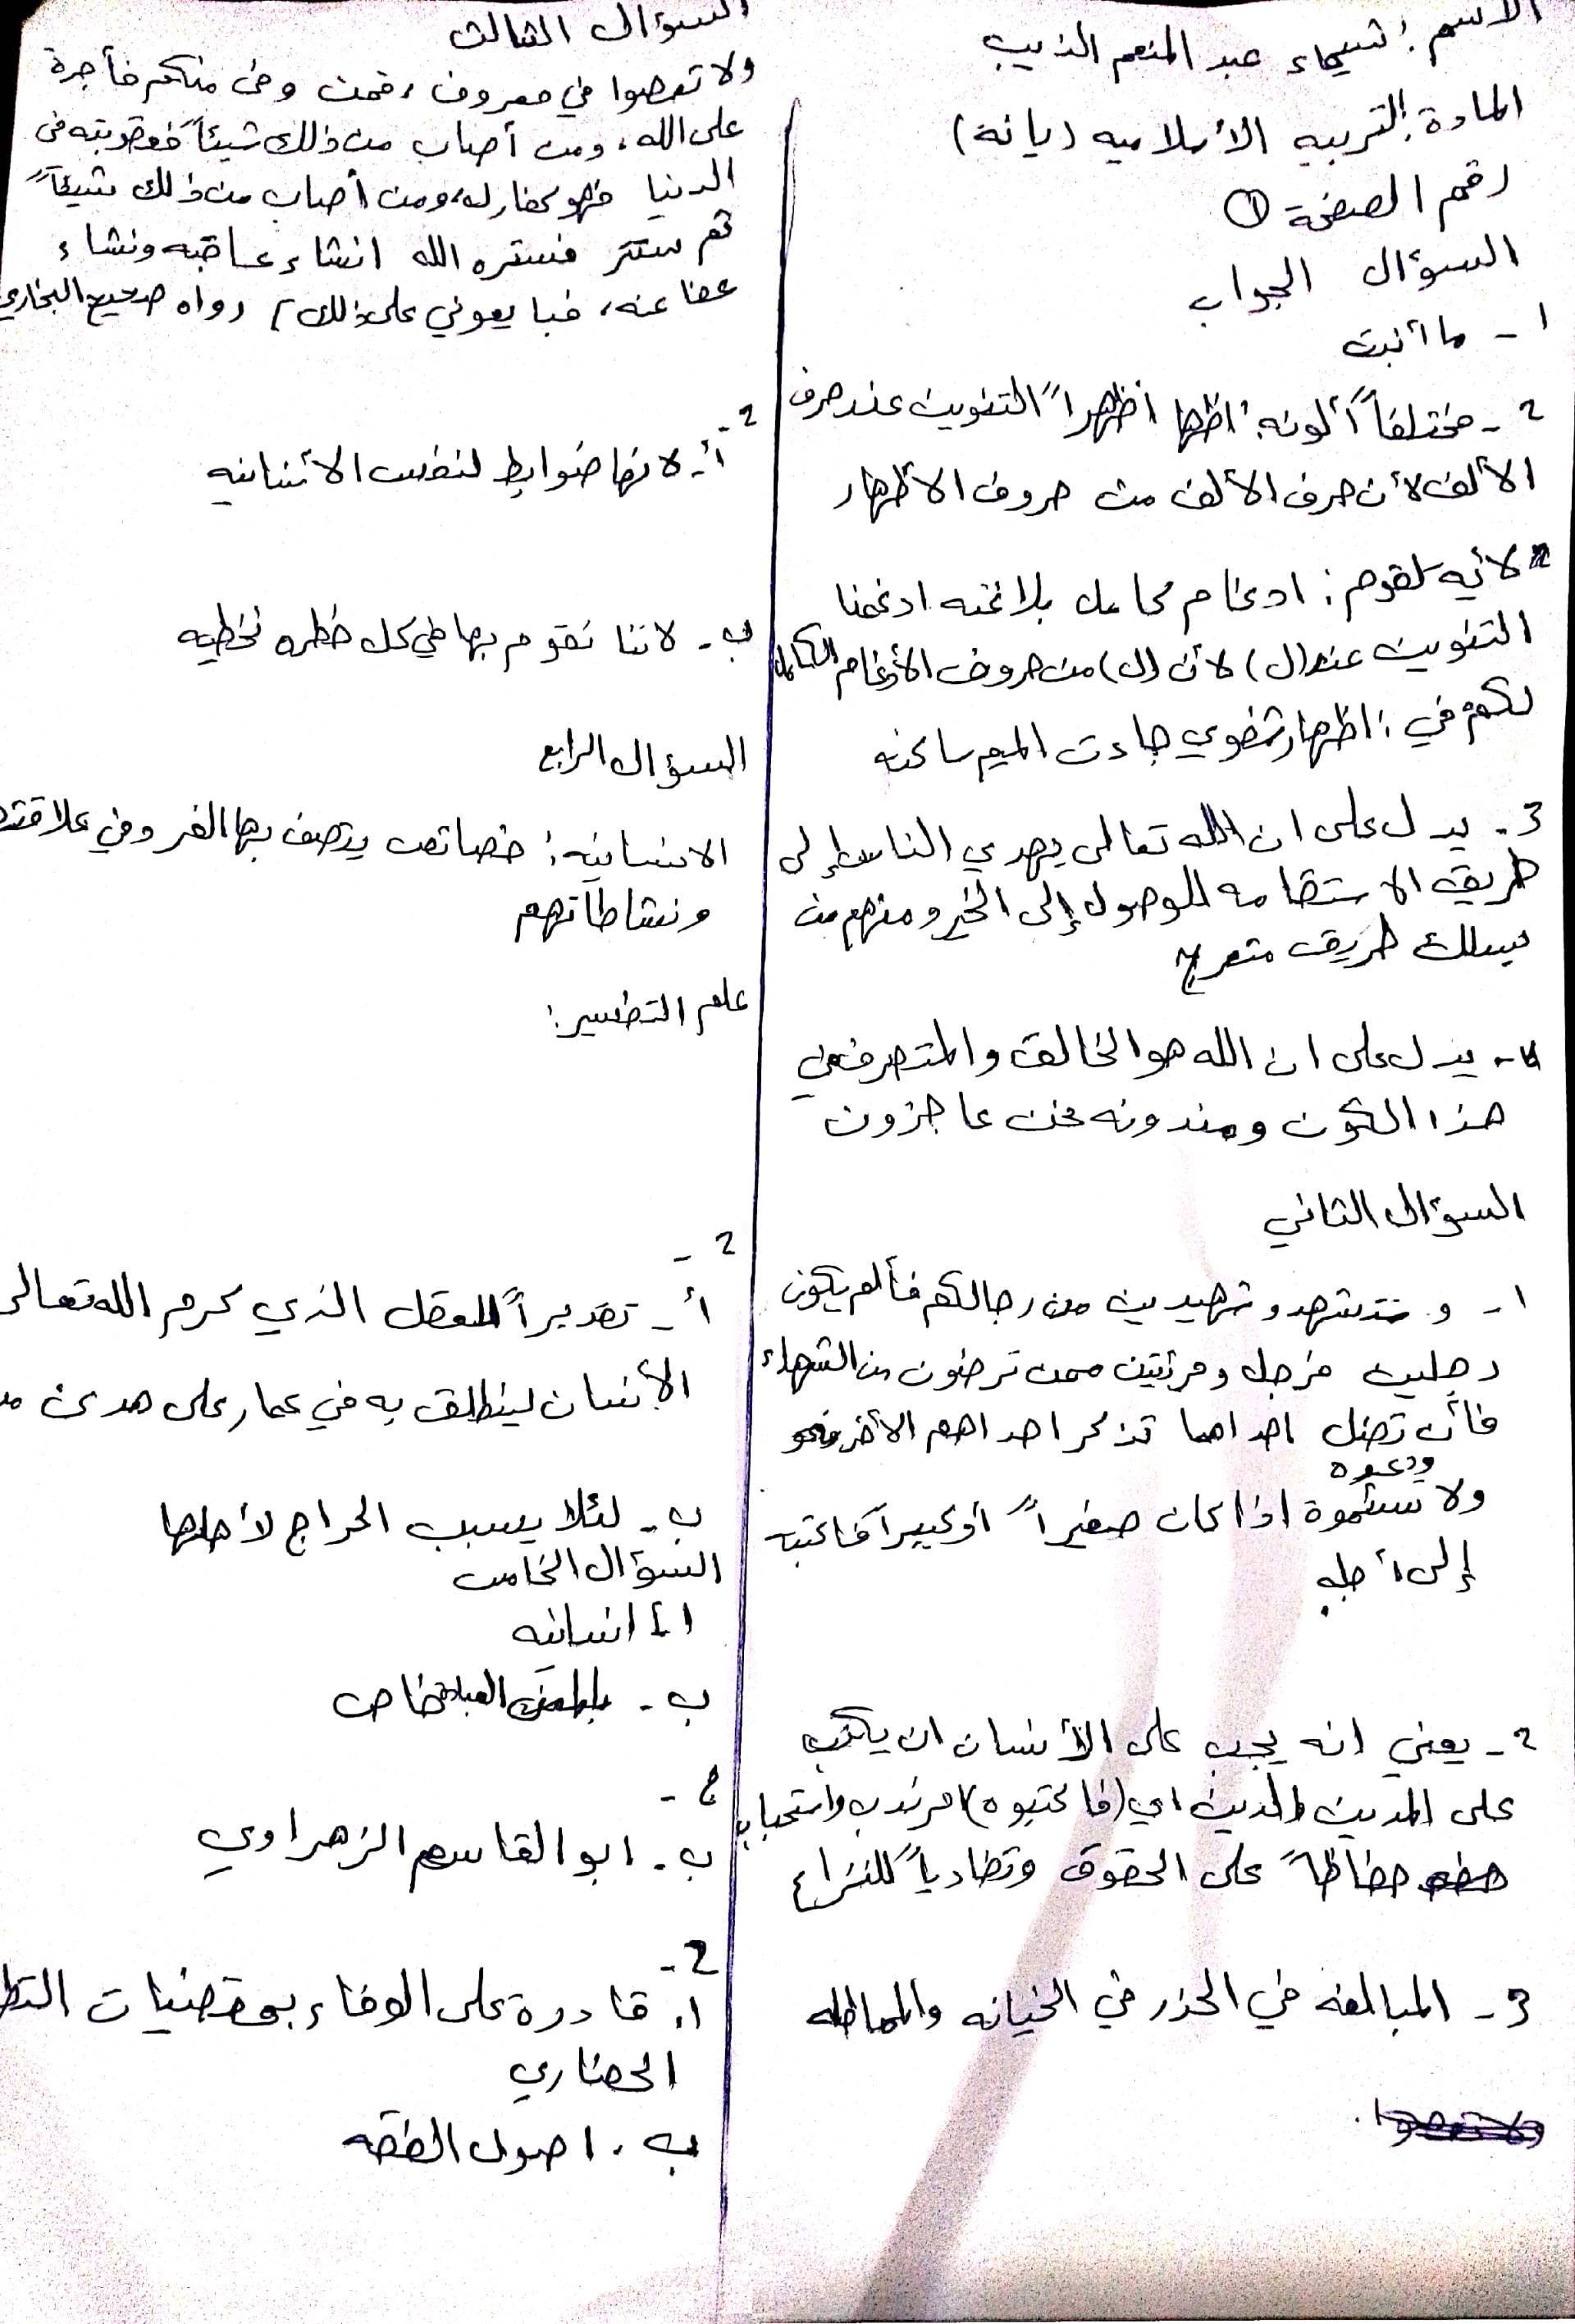 الاسم: شيماء عبد المنعم الذيب
المادة: التربيه الأسلاميه (ديانة)
رقم الصفحة ①
السؤال الجواب
1 - ما أنبت
2 - مختلفاً ألونه: اظهرا ً التنوين عند حرف
الألف لأن حرف الألف من حروف الأظهار
لأيه لقوم: ادغام كامل بلا غنه ادغمنا
التنوين عند (ل) لأن (ل) من حروف الأدغام الكامل
لكم في: اظهار شفوي جاءت الميم ساكنه
3 - يدل على ان الله تعالى يهدي الناس إلى
طريق الاستقامه للوصول إلى الخير ومنهم من
يسلك طريق متعرج
4 - يدل على ان الله هو الخالق والمتصرف في
هذا الكون ومندونه نحن عاجزون
السؤال الثاني
1 - و ستشهدو شهيدين من رجالكم فألم يكون
رجلين فرجل ومرئتين ممن ترضون من الشهداء
فأن تضل احداهما تذكر احداهم الأخر
ودعوه
ولا تسئموة اذا كان صغيراً أو كبيراً فاكتبه
إلى أجله
2 - يعني انه يجب على الأنسان ان يكتب
على المدين الدين اي (فاكتبوه) امر ندب واستحباب
حفاظاً على الحقوق وتفادياً للنزاع
3 - المبالغه في الحذر في الخيانه والمماطله
السؤال الثالث
ولا تعصوا في معروف، فمن وفى منكم فأجرة
على الله، ومن أصاب من ذلك شيئاً فعقوبته في
الدنيا فهو كفار له، ومن أصاب من ذلك شيئاً
ثم ستر فستره الله انشاء عاقبه ونشاء
عفا عنه، فبايعوني على ذلك) رواه صحيح البخاري
2 -
أ - لانها ضوابط لنفس الأنسانيه
ب - لاننا نقوم بها في كل خطره نخطيه
السؤال الرابع
الانسانيه: خصائص يتصف بها الفرد في علاقته
ونشاطاتهم
علم التفسير:
2 -
أ - تقديراً للعقل الذي كرم الله تعالى
الأنسان لينطلق به في عمار على هدى
ب - لئلا يسبب الحراج لأهلها
السؤال الخامس
1 أ انسانيه
ب - خاص
ب - ابو القاسم الزهراوي
2 -
أ. قادرة على الوفاء بمقتضيات
الحضاري
ب. اصول الفقه